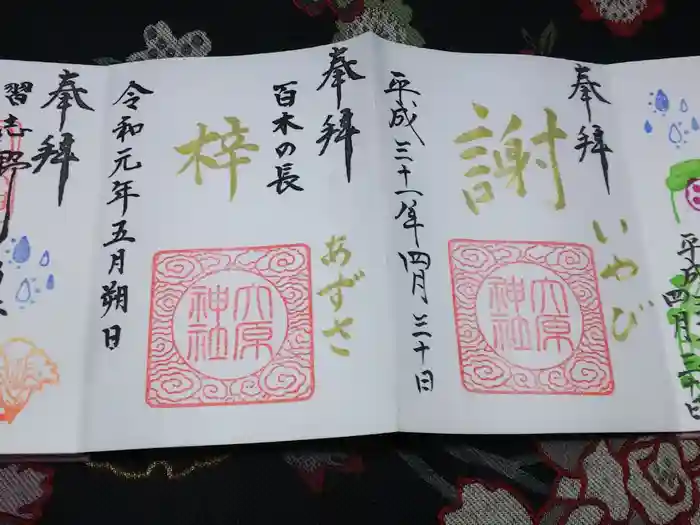 平成三十一年四月三十日
奉拝
謝
いやび
大原
神社
平成三十一年四月三十日
奉拝
百木の長
梓
あずさ
大原
神社
令和元年五月朔日
奉拝
習志野